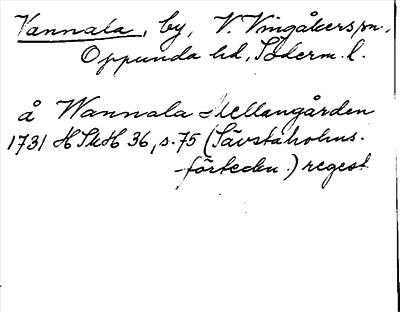 Vannala, by, V. Vingåkers sn,
Oppunda hd, Söderm. l.
å Wannala Mellangården
1731 HSkH 36, s. 75 (Sävstaholms-
förteckn.) regest